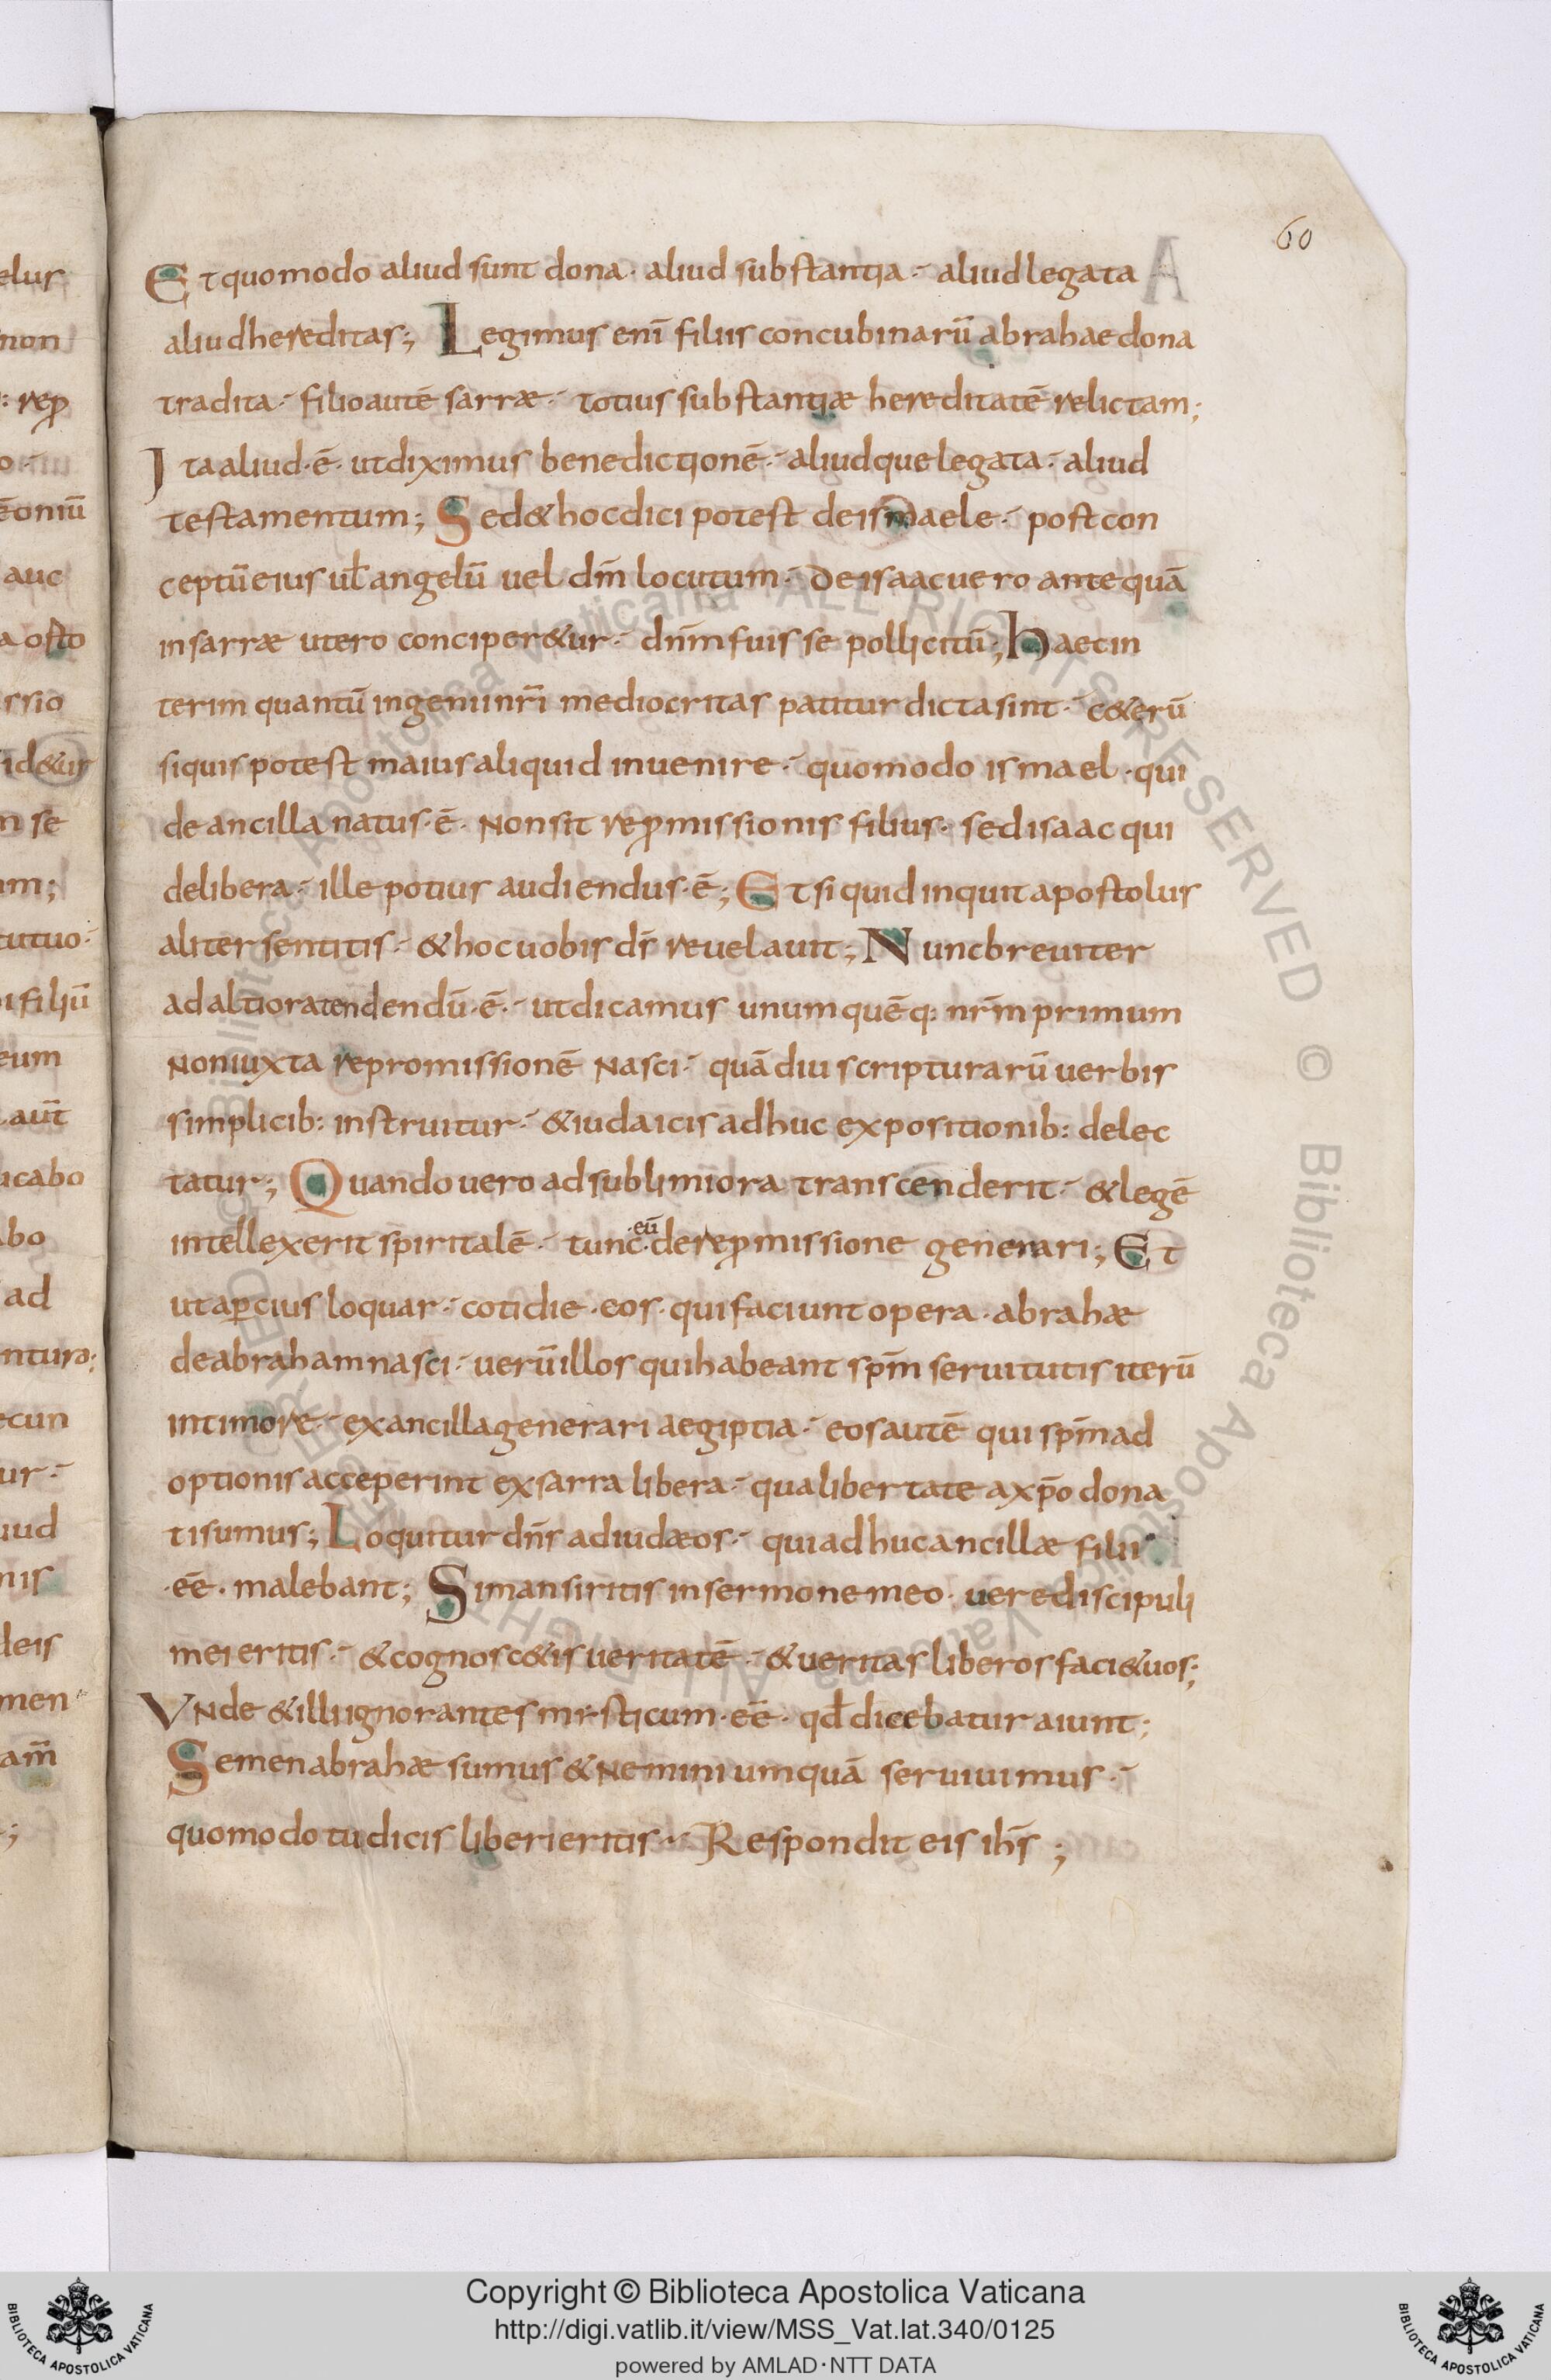 60
Et quomodo aliud sunt dona · aliud substantia · aliud legata
aliud hereditas; Legimus eni͞ filiis concubinaru͞ abrahae dona
tradita · filio aute͞ sarræ · totius substantiæ hereditate͞ relictam;
Ita aliud · e͞ · ut diximus benedictione͞ · aliudque legata · aliud
testamentum; Sed & hoc dici potest de ismaele · post con
ceptu͞ eius uł angelu͞ uel dn͞m locutum · De isaac uero antequa͞
in sarræ utero conciper&ur · dn͞m fuisse pollicitu͞; Haec in
terim quantu͞ ingenii nr͞i mediocritas patitur dicta sint · c&eru͞
siquis potest maius aliquid inuenire · quomodo ismael · qui
de ancilla natus · e͞ · Non sit rep̱missionis filius · sed isaac qui
de libera · ille potius audiendus · e͞; Et si quid inquit apostolus
aliter sentitis · & hoc uobis ds͞ reuelauit; Nunc breuiter
ad altiora tendendu͞ · e͞ · ut dicamus unumque͞q: nr͞m primum
Non iuxta repromissione͞ Nasci · qua͞diu scripturaru͞ uerbis
simplicib: instruitur · & iudaicis adhuc expositionib: delec
tatur; Quando uero ad sublimiora transcenderit · & lege͞
intellexerit sp͞iritale͞ · tunc · eu͞ · de rep̱missione generari; Et
ut ap̱cius loquar · cotidie · eos · qui faciunt opera · abrahæ
de abraham nasci · ueru͞ illos qui habeant sp͞m seruitutis iteru͞
in timore · ex ancilla generari aegiptia · eos aute͞ qui sp͞m ad
optionis acceperint ex sarra libera · qua libertate a xp͞o dona
ti sumus; Loquitur dn͞s ad iudæos · qui adhuc ancillæ filii
· ee͞ · malebant; Si mansiritis in sermone meo · uere discipuli
mei eritis · & cognosc&is ueritate͞ · & ueritas liberos faci& uos;
VNde & illi ignorantes mysticum · ee͞ · qđ dicebatur aiunt;
Semen abrahæ sumus & Nemini umqua͞ seruiuimus ·
quomodo tu dicis liberi eritis · Respondit eis ih͞s;
elur
non
: rep̱
o ·
e͞oniu͞
auc
a osto
ssio
id&ur
n se
um;
tutuo ·
i filiu͞
eum
· aut͞
icabo
abo
ad
nturo;
ecun
ur ·
iud
nis
deis
men
am͞
;
© Biblioteca Apostolica Vaticana ALL RIGHTS RESERVED
© Biblioteca Apostolica Vaticana ALL RIGHTS RESERVED
Copyright © Biblioteca Apostolica Vaticana
http://digi.vatlib.it/view/MSS_Vat.lat.340/0125
powered by AMLAD·NTT DATA
BIBLIOTECA APOSTOLICA VATICANA
BIBLIOTECA APOSTOLICA VATICANA